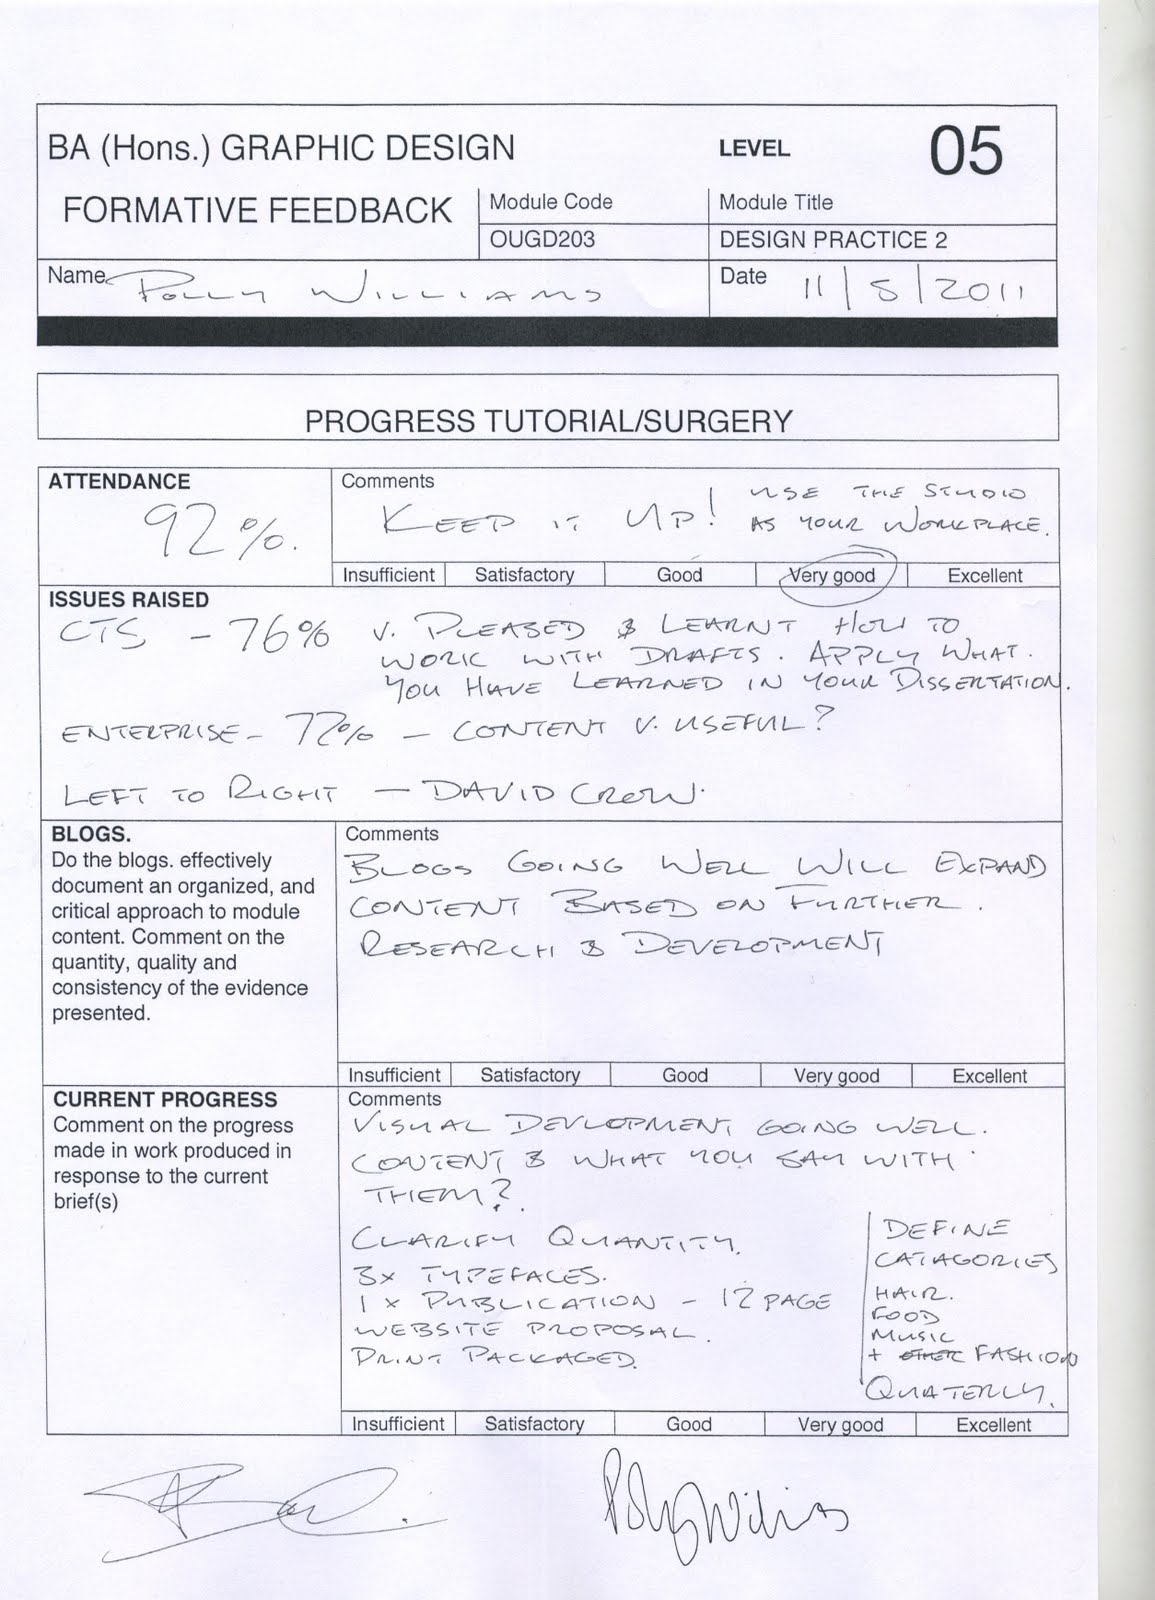 BA (Hons.) GRAPHIC DESIGN
LEVEL 05
FORMATIVE FEEDBACK
Module Code
Module Title
OUGD203
DESIGN PRACTICE 2
Name POLLY WILLIAMS
Date 11/5/2011
PROGRESS TUTORIAL/SURGERY
ATTENDANCE
92%.
Comments
KEEP IT UP! USE THE STUDIO
AS YOUR WORKPLACE.
Insufficient Satisfactory Good Very good Excellent
ISSUES RAISED
CTS - 76% V. PLEASED & LEARNT HOW TO
WORK WITH DRAFTS. APPLY WHAT.
YOU HAVE LEARNED IN YOUR DISSERTATION.
ENTERPRISE - 72% - CONTENT V. USEFUL?
LEFT TO RIGHT - DAVID CROW.
BLOGS.
Do the blogs. effectively
document an organized, and
critical approach to module
content. Comment on the
quantity, quality and
consistency of the evidence
presented.
Comments
BLOGS GOING WELL WILL EXPAND
CONTENT BASED ON FURTHER.
RESEARCH & DEVELOPMENT
Insufficient Satisfactory Good Very good Excellent
CURRENT PROGRESS
Comment on the progress
made in work produced in
response to the current
brief(s)
Comments
VISUAL DEVLOPMENT GOING WELL.
CONTENT & WHAT YOU SAY WITH
THEM?
CLARIFY QUANTITY.
3x TYPEFACES.
1 x PUBLICATION - 12 PAGE
WEBSITE PROPOSAL.
PRINT PACKAGED.
DEFINE
CATAGORIES
HAIR.
FOOD
MUSIC
+ OTHER FASHION
QUATERLY.
Insufficient Satisfactory Good Very good Excellent
Polly Williams